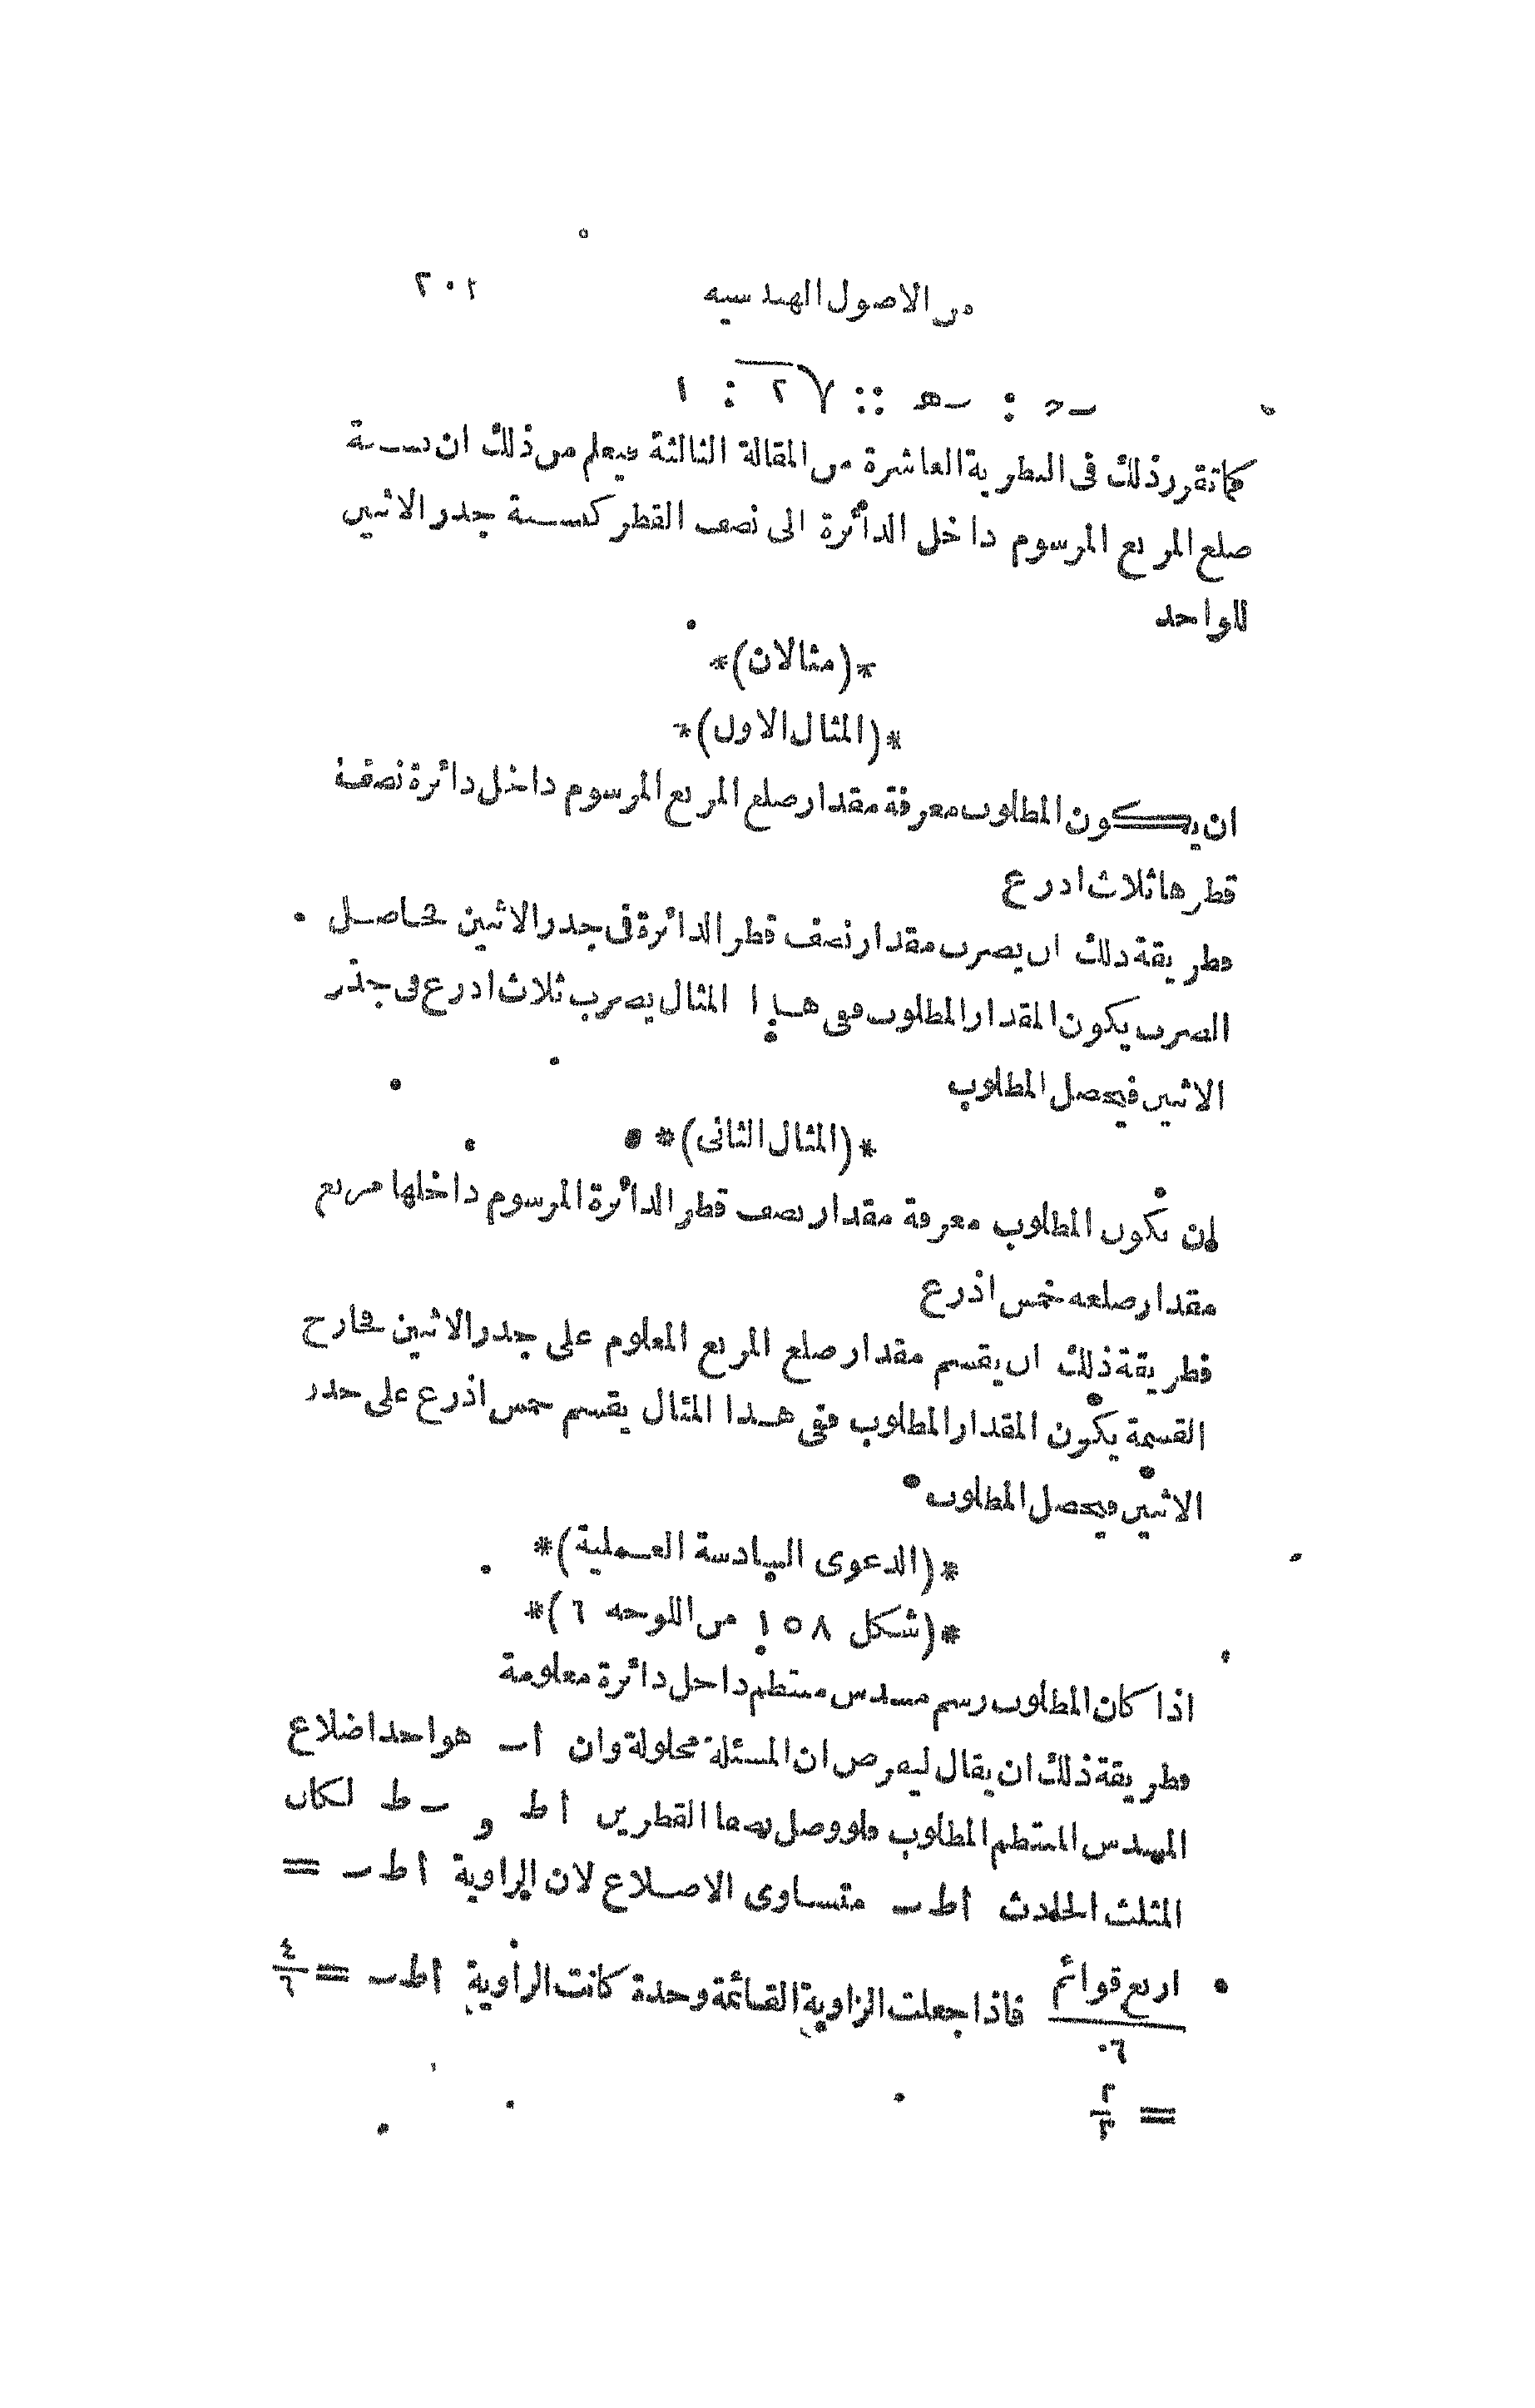 من الاصول الهندسيه ٢٠١
ب‍ح : ب‍ه‍ :: √٢ : ١
كما تقرر ذلك فى النظرية العاشرة من المقالة الثالثة فيعلم من ذلك ان نسبة
ضلع المربع المرسوم داخل الدائرة الى نصف القطر كنسبة جذر الاثنين
للواحد
*(مثالان)*
*(المثال الاول)*
ان يكون المطلوب معرفة مقدار ضلع المربع المرسوم داخل دائرة نصف
قطرها ثلاث اذرع
فطريقة ذلك ان يضرب مقدار نصف قطر الدائرة فى جذر الاثنين فحاصل
الضرب يكون المقدار المطلوب ففى هذا المثال يضرب ثلاث اذرع فى جذر
الاثنين فيحصل المطلوب
*(المثال الثانى)*
ان يكون المطلوب معرفة مقدار نصف قطر الدائرة المرسوم داخلها مربع
مقدار ضلعه خمس اذرع
فطريقة ذلك ان يقسم مقدار ضلع المربع المعلوم على جذر الاثنين فخارج
القسمة يكون المقدار المطلوب ففى هذا المثال يقسم خمس اذرع على جذر
الاثنين فيحصل المطلوب
*(الدعوى السادسة العملية)*
*(شكل ١٥٨ من اللوحه ٦)*
اذا كان المطلوب رسم مسدس منتظم داخل دائرة معلومة
فطريقة ذلك ان يقال ليفرض ان المسئلة محلولة وان اب هو احد اضلاع
المسدس المنتظم المطلوب فلو وصل نصفا القطرين اط و ب‍ط لكان
المثلث الحادث اط‍ب متساوى الاضلاع لان الزاوية اط‍ب =
اربع قوائم/٦ فاذا جعلت الزاوية القائمة وحدة كانت الزاوية اط‍ب = ٤/٦
= ٢/٣